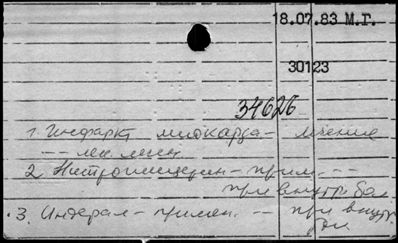 18.07.83 М.Г.
30123
34626
1. Инфаркт миокарда - лечение
2. Нитроглицерин - прим. --
при внутр. бол.
3. Индерал - примен. -- при внутр.